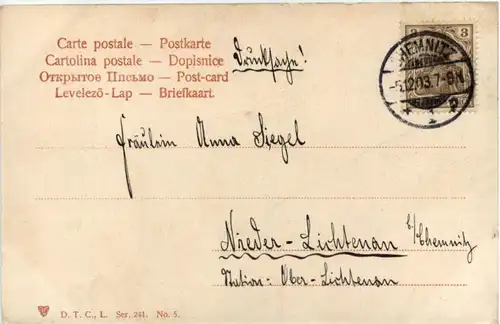 Carte postale — Postkarte
Cartolina postale — Dopisnice
Открытое Письмо — Post-card
Levelező-Lap — Briefkaart.
Drucksache!
3 3
CHEMNITZ
-5.12.03.7-8N.
* 1 p
Fräulein Anna Siegel
Nieder-Lichtenau b/Chemnitz
Station: Ober-Lichtenau
D. T. C., L. Ser. 241. No. 5.